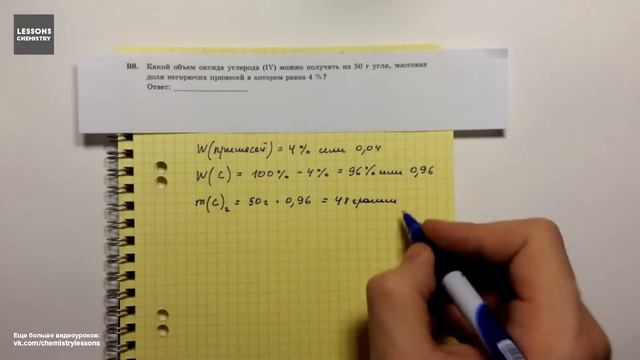 LESSONS
CHEMISTRY
В8. Какой объем оксида углерода (IV) можно получить из 50 г угля, массовая
доля негорючих примесей в котором равна 4 %?
Ответ:
W(примесей) = 4% или 0,04
W(C) = 100% - 4% = 96% или 0,96
m(C)₂ = 50г · 0,96 = 48 грамм
Еще больше видеоуроков:
vk.com/chemistrylessons